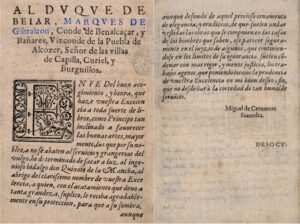 AL DVQVE DE
BEIAR, MARQVES DE
Gibraleon, Conde de Benalcaçar, y
Bañares, Vizconde de la Puebla de
Alcozer, Señor de las villas
de Capilla, Curiel, y
Burguillos.
ENFE del buen aco-
gimiento, y honra, que
haze vuestra Excelen-
cia a toda suerte de li-
bros, como Principe tan
inclinado a fauorecer
las buenas artes, mayor
mente las que por su no-
bleza no se abaten al seruicio y grangerias del
vulgo, he determinado de sacar a luz, al inge-
nioso hidalgo don Quixote de la Mancha, al
abrigo del clarissimo nombre de vuestra Exce-
lencia, a quien, con el acatamiento que deuo a
tanta grandeza, suplico, le reciba agradable-
mente en su proteccion, para que a su sombra,
aunque
aunque desnudo de aquel precioso ornamento
de elegancia, y erudicion, de que suelen andar
vestidas las obras que se componen en las casas
de los hombres que saben, ose parecer segura-
mente en el juyzio de algunos, que continiendo-
se en los limites de su ignorancia, suelen con-
denar con mas rigor, y menos justicia, los tra-
bajos agenos, que poniendo los ojos la prudencia
de vuestra Excelencia en mi buen desseo, fio,
que no desdeñara la cortedad de tan humilde
seruicio.
Miguel de Ceruantes
Saauedra.
DESOCV-